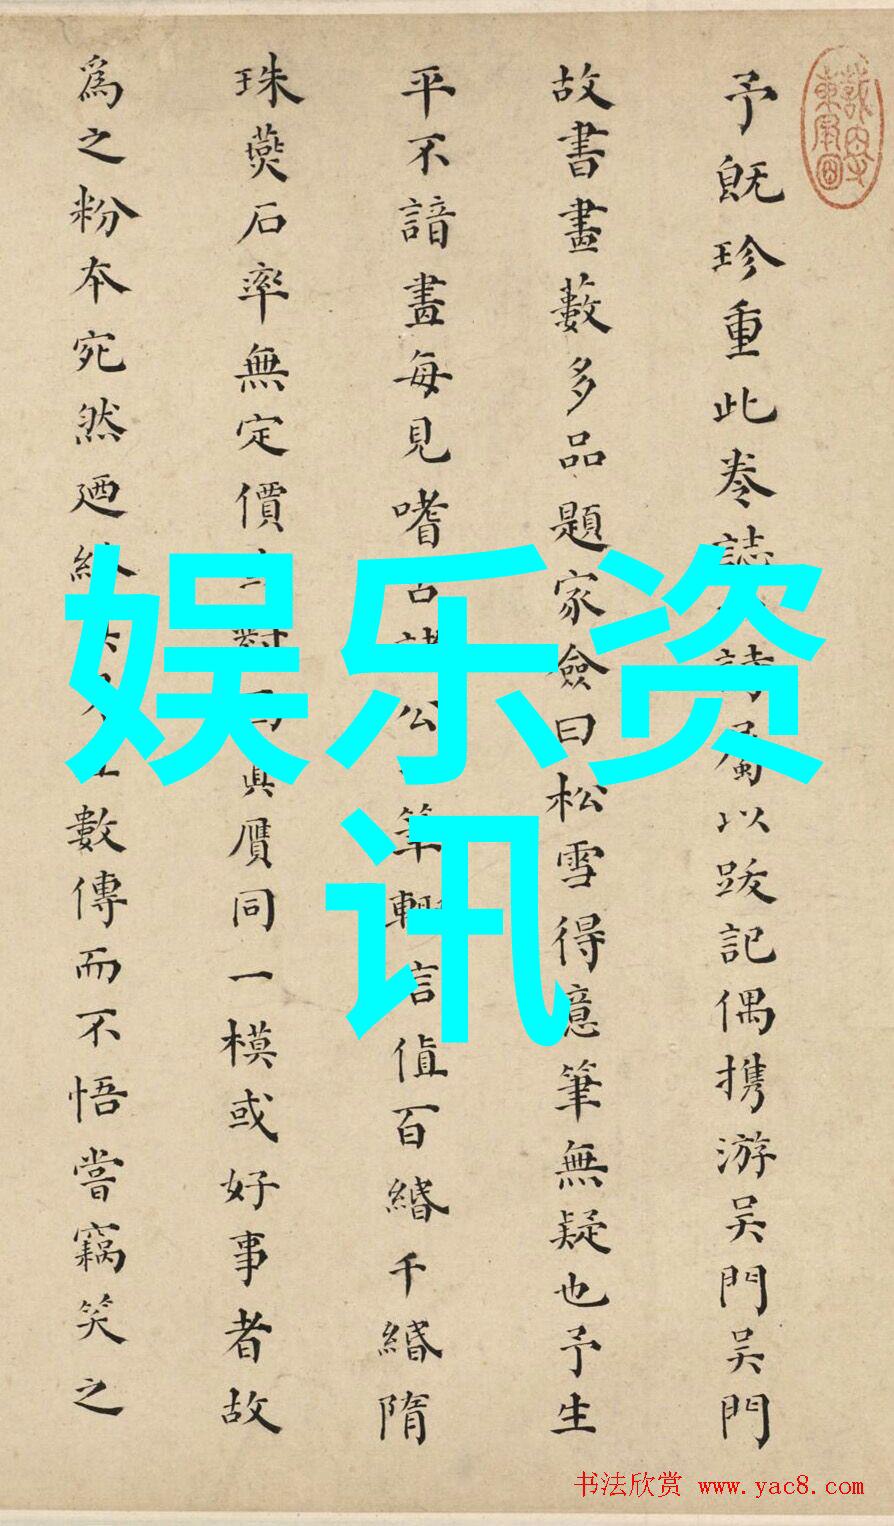 予既珍重此卷誌詩屬以跋記偶携游吴門吴門
故書畫藪多品題家僉曰松雪得意筆無疑也予生
平不諳畫每見嗜古諸公筆輙言值百緡千緡隋
珠燕石率無定價對真贋同一模或好事者故
爲之粉本宛然廼數傳而不悟嘗竊笑之
娱乐资
讯
书法欣赏 www.yac8.com